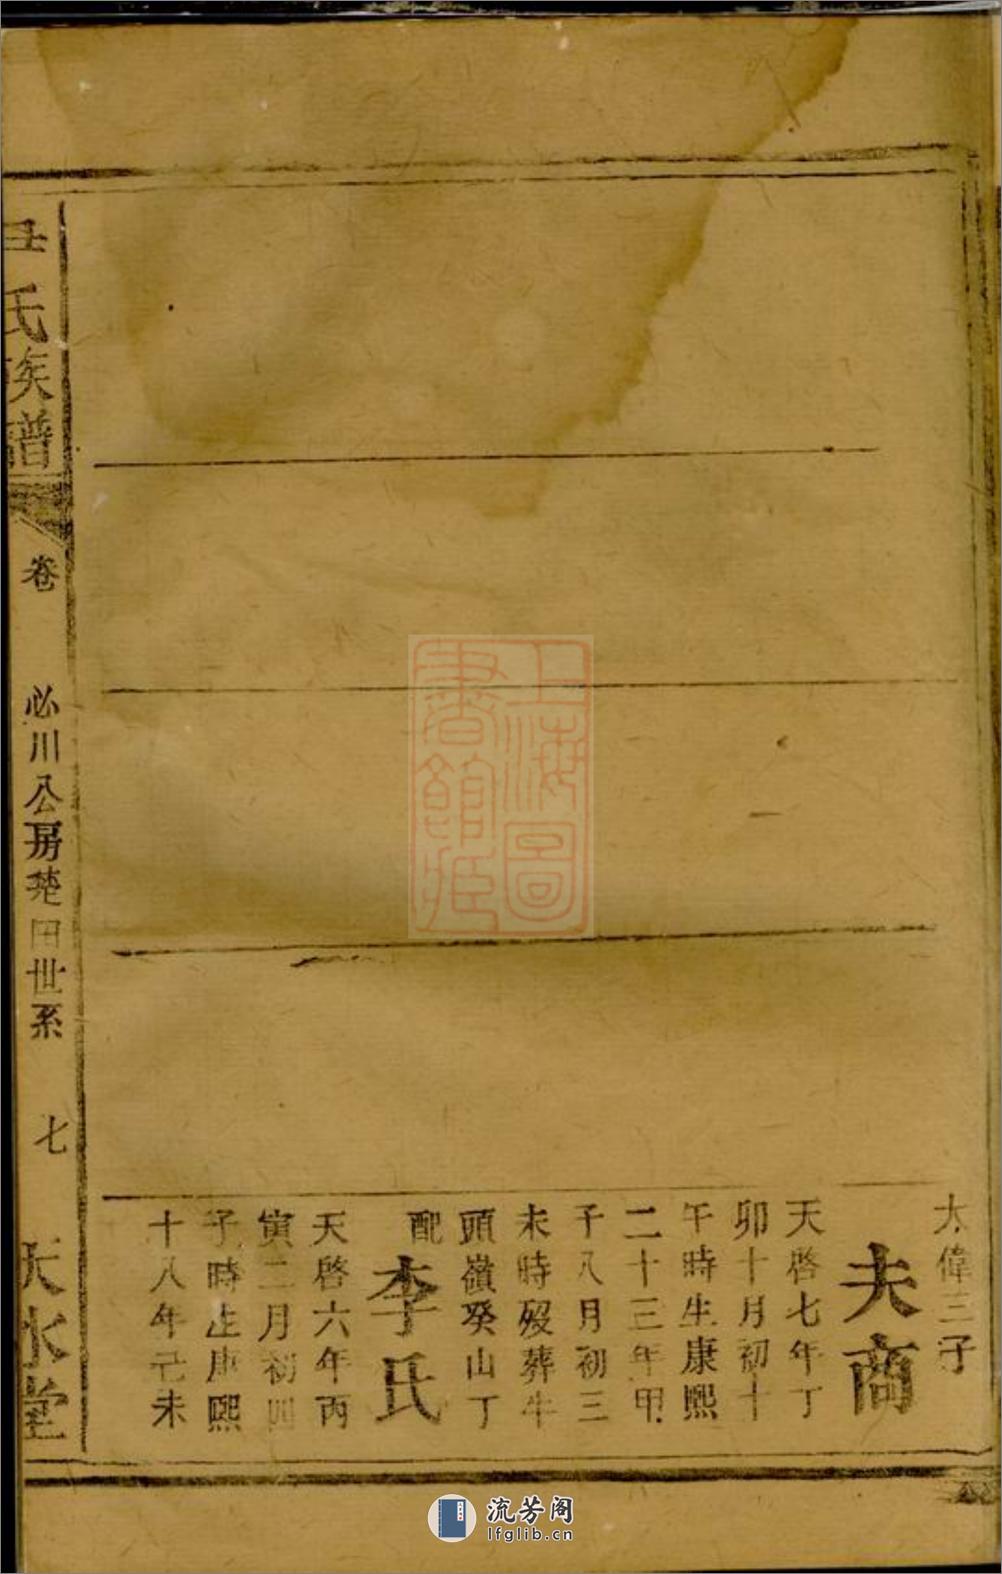 太偉三子
夫商
天啓七年丁
卯十月初十
午時生康熙
二十三年甲
子八月初三
未時歿葬牛
頭嶺癸山丁
配
李氏
天啓六年丙
寅二月初四
子時生康熙
十八年己未
氏族譜
卷
必川公房楚田世系
七
天水堂
上海圖書館藏
流芳阁
lfglib.cn